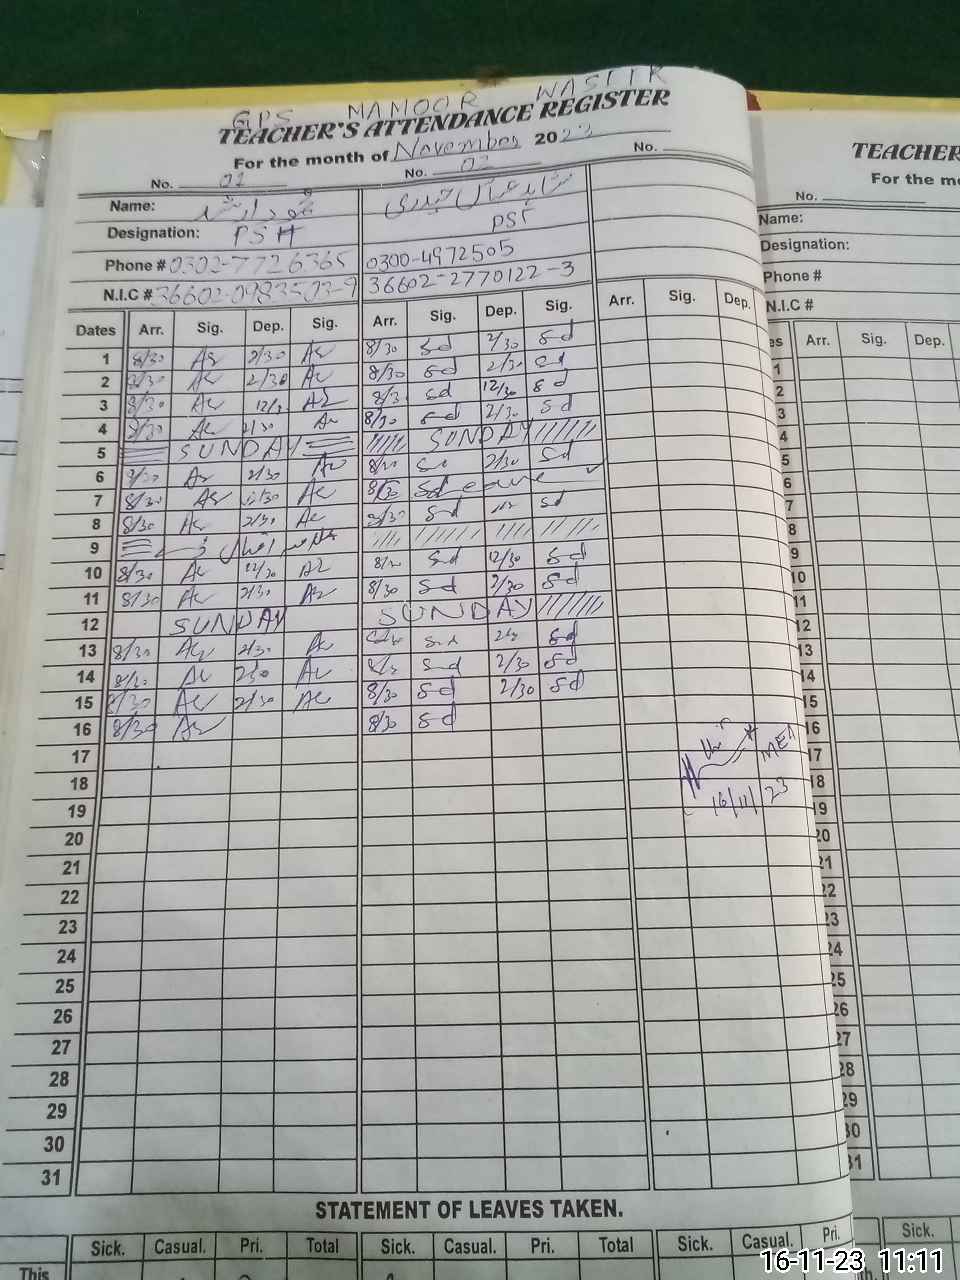 GPS MAMOOR WASTTR
TEACHER'S ATTENDANCE REGISTER
For the month of November 2023
No. 01 No. 02 No.
Name:
Designation: PSH PST
Phone # 0302-7726365 0300-4972505
N.I.C # 36602-0983503-9 36602-2770122-3
Dates Arr. Sig. Dep. Sig. Arr. Sig. Dep. Sig. Arr. Sig. Dep.
1 8/30 As 2/30 As 8/30 Sd 2/30 Sd
2 8/30 As 2/30 As 8/30 Sd 2/30 Sd
3 8/30 As 12/3 As 8/3 Sd 12/30 Sd
4 8/30 As 2/30 As 8/30 Sd 2/30 Sd
5 SUNDAY SUNDAY
6 8/30 As 2/30 As 8/30 Sd 2/30 Sd
7 8/30 As 2/30 As 8/30 Sd
8 8/30 As 2/30 As 8/30 Sd Sd
9 اقبال
10 8/30 As 12/30 As 8/30 Sd 12/30 Sd
11 8/30 As 2/30 As 8/30 Sd 2/30 Sd
12 SUNDAY SUNDAY
13 8/30 As 2/30 As Sd Sd
14 8/30 As 230 As Sd 2/30 Sd
15 8/30 As 2/30 As 8/30 Sd 2/30 Sd
16 8/30 As 8/30 Sd
17 MEA
18 16/11/23
19
20
21
22
23
24
25
26
27
28
29
30
31
STATEMENT OF LEAVES TAKEN.
Sick. Casual. Pri. Total Sick. Casual. Pri. Total Sick. Casual. Pri.
This
TEACHER
For the mo
No.
Name:
Designation:
Phone #
N.I.C #
es Arr. Sig. Dep.
1
2
3
4
5
6
7
8
9
10
11
12
13
14
15
16
17
18
19
20
21
22
23
24
25
26
27
28
29
30
31
Sick.
16-11-23 11:11